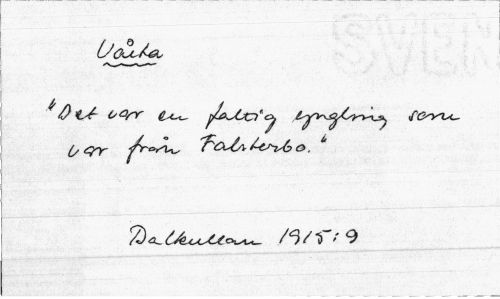 SVEN
Visa
"Det var en fattig yngling som
var från Falsterbo."
Dalkullan 1915:9